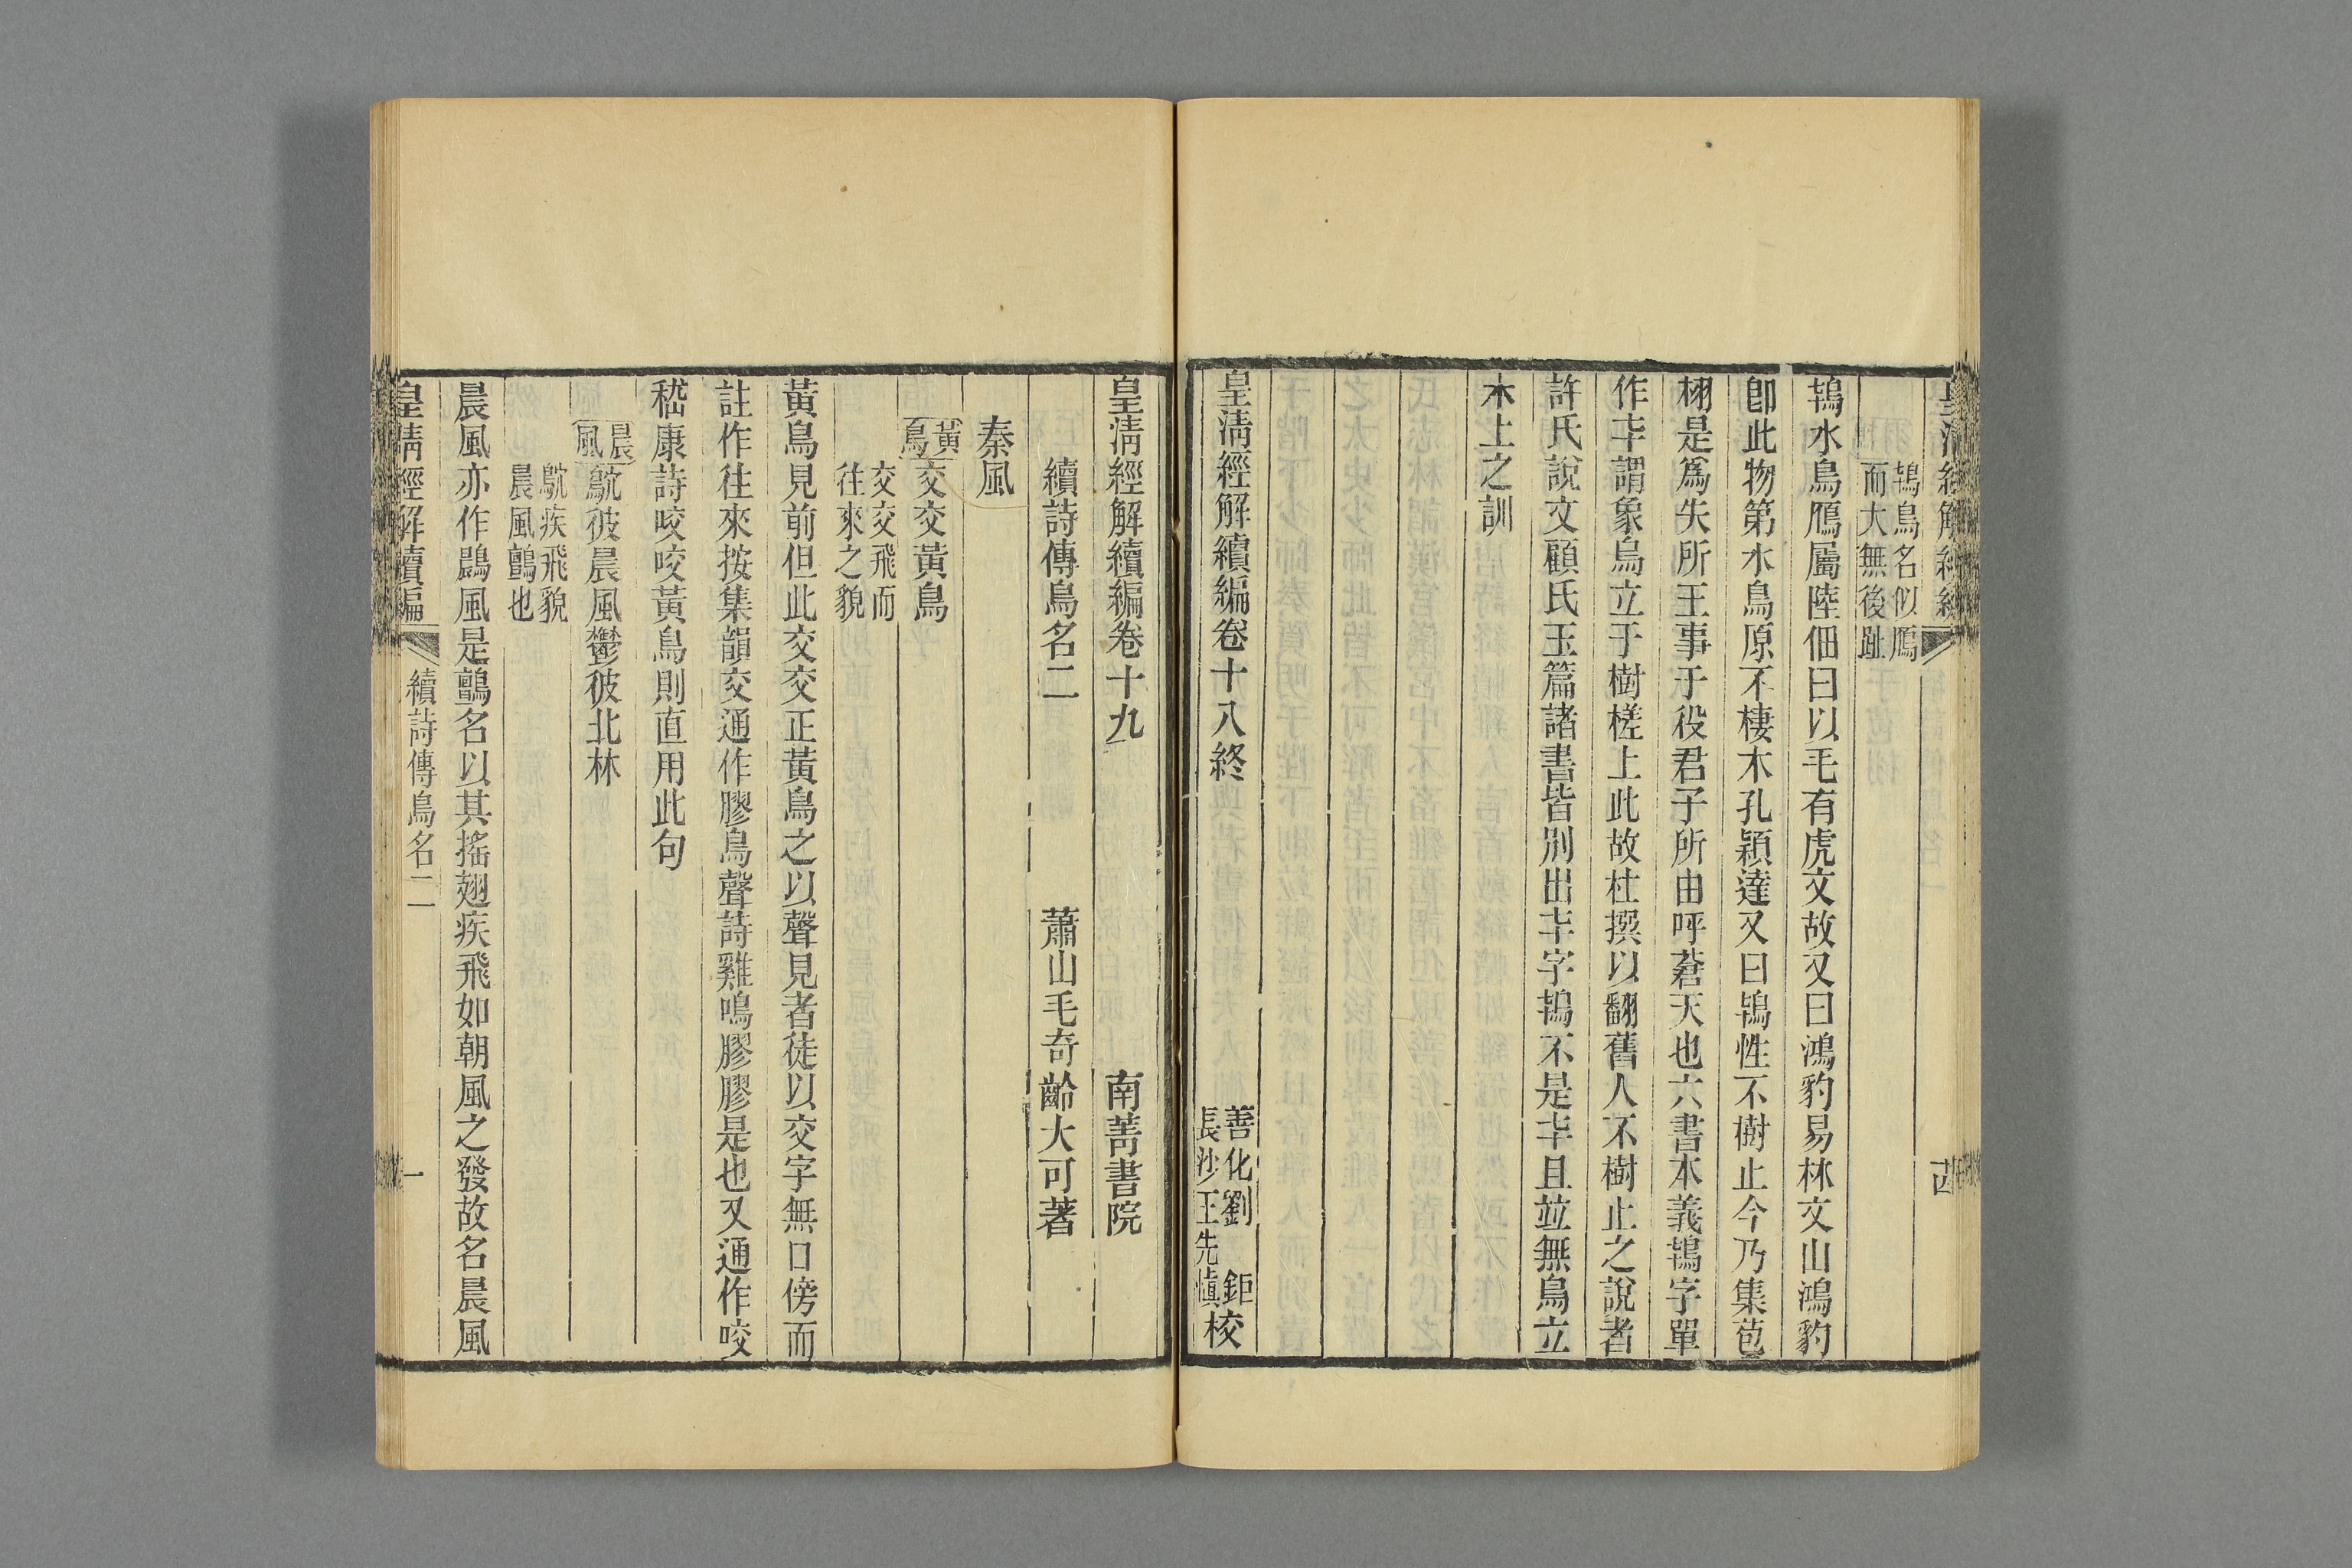 鴇鳥名似鴈
而大無後趾
鴇水鳥鴈屬陸佃曰以毛有虎文故又曰鴻豹易林文山鴻豹
卽此物第水鳥原不棲木孔穎達又曰鴇性不樹止今乃集苞
栩是爲失所王事于役君子所由呼蒼天也六書本義鴇字單
作𠦒謂象鳥立于樹槎上此故杜撰以翻舊人不樹止之說者
許氏說文顧氏玉篇諸書皆別出𠦒字鴇不是𠦒且並無鳥立
木上之訓
皇淸經解續編卷十八終
善化劉鉅
長沙王先愼校
皇淸經解續編卷十九
南菁書院
續詩傳鳥名二
蕭山毛奇齡大可著
秦風
黃鳥
交交黃鳥
交交飛而
往來之貌
黃鳥見前但此交交正黃鳥之以聲見者徒以交字無口傍而
註作往來按集韻交通作膠鳥聲詩雞鳴膠膠是也又通作咬
嵇康詩咬咬黃鳥則直用此句
晨風
鴥彼晨風鬱彼北林
鴥疾飛貌
晨風鸇也
晨風亦作鷐風是鸇名以其搖翅疾飛如朝風之發故名晨風
皇淸經解續編
續詩傳鳥名二
一